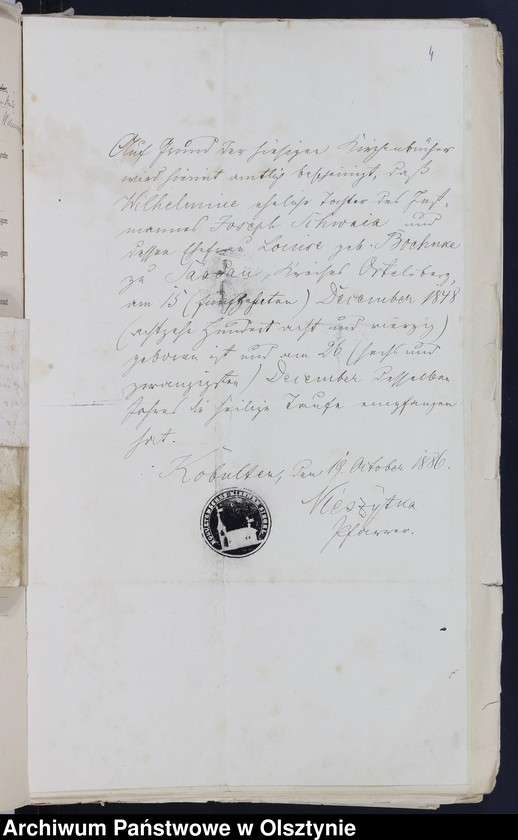 4
Auf Grund der hiesigen Kirchenbücher
wird hiermit amtlich bescheinigt, daß
Wilhelmine eheliche Tochter des Inst-
mannes Joseph Schwaia und
dessen Ehefrau Louise geb. Bochnke
zu Kreises Ortelsburg,
am 15 (fünfzehnten) December 1848
(achtzehn Hundert acht und vierzig)
geboren ist und am 26 (sechs und
zwanzigsten) December desselben
Jahres die heilige Taufe empfangen
hat.
Kobulten, den 19 October 1886.
Nieszytka
Pfarrer.
Archiwum Państwowe w Olsztynie